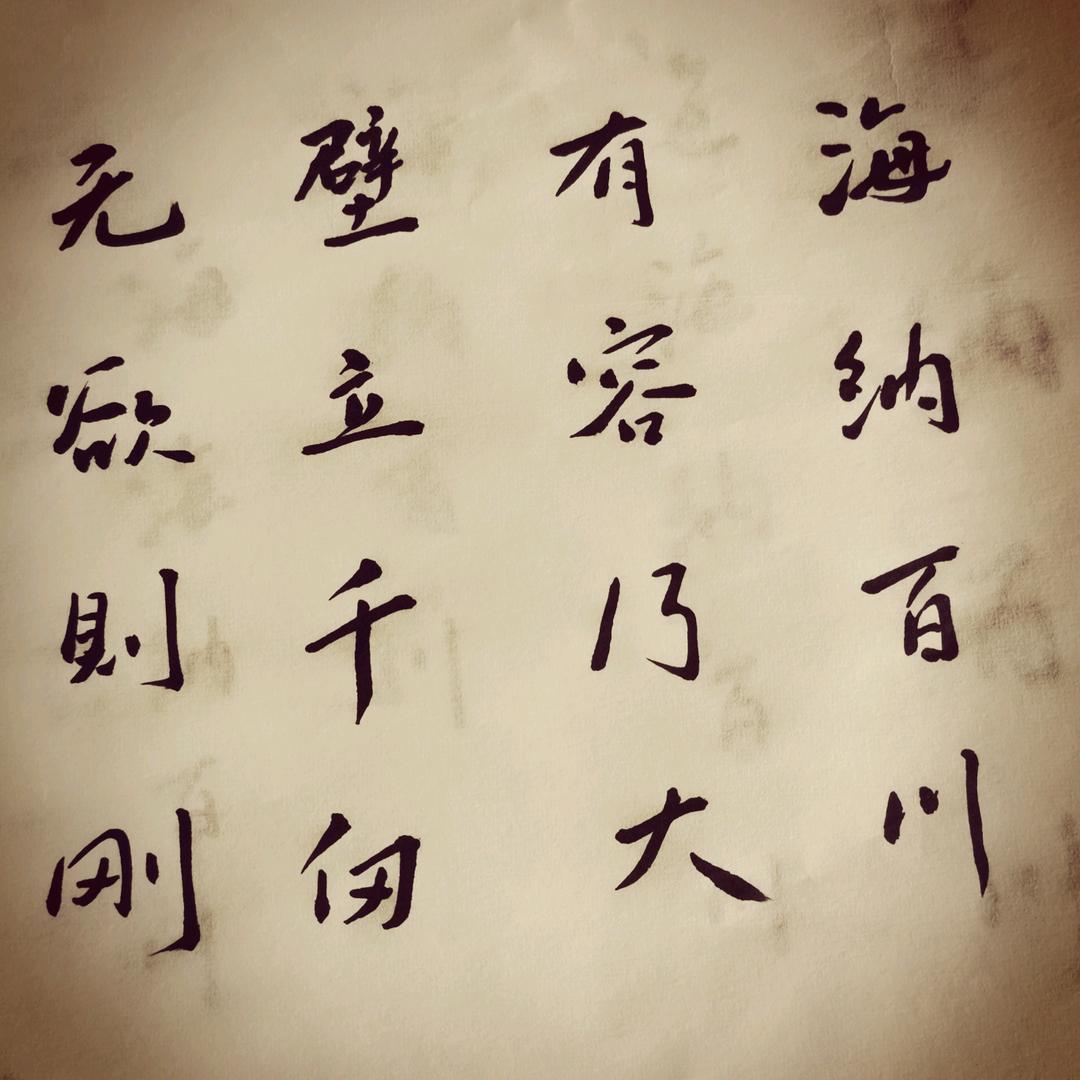 海納百川
有容乃大
壁立千仞
无欲則剛